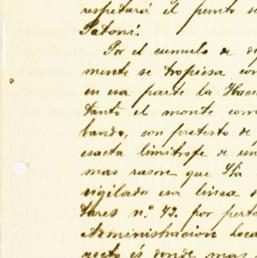 respetará él punto se
Patoni.
Por el cumulo de
mente se tropiesa con
en esa parte la Hacie
tanto el monte com
bando, con pretesto de
esacta limitrofe de un
mas rason que Ya
vigilada esa linea d
tares n.º 43. por perte
Administracion loca
recto és donde mas